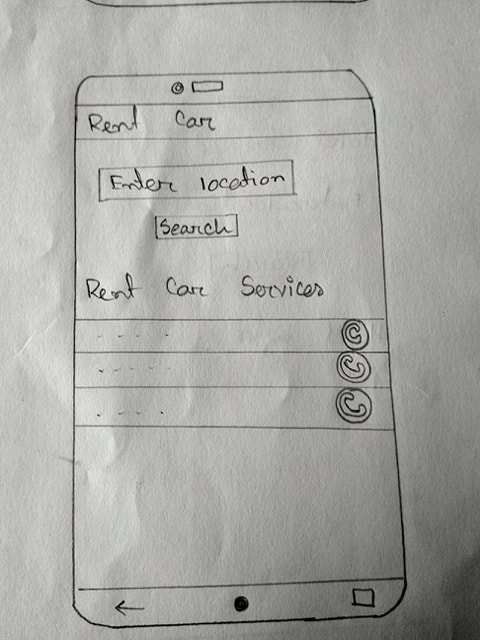 Rent Car
Enter location
Search
Rent Car Services